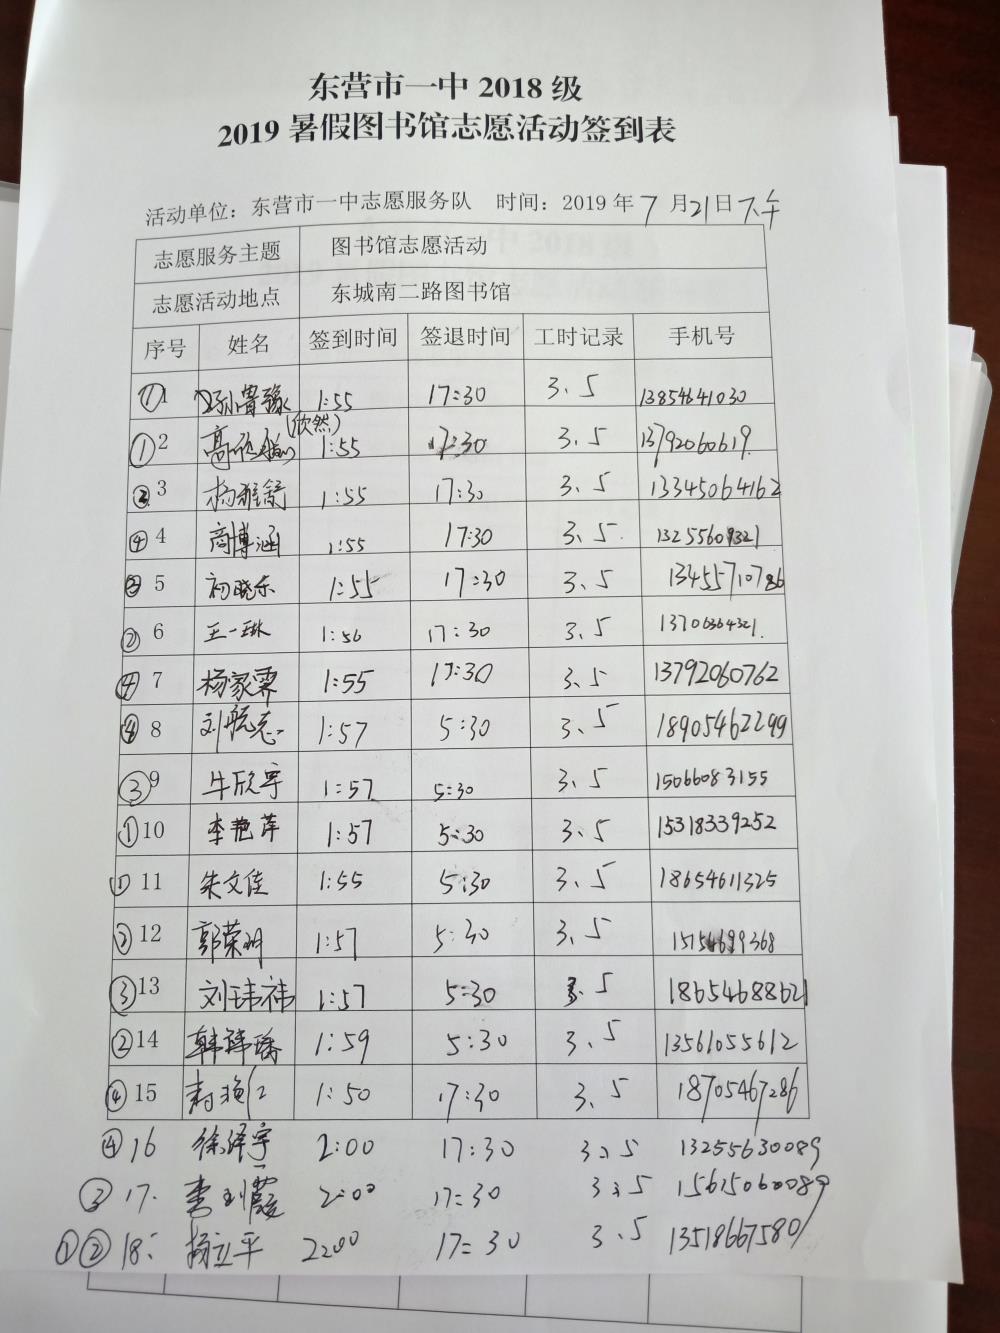 东营市一中 2018 级
2019 暑假图书馆志愿活动签到表
活动单位：东营市一中志愿服务队 时间：2019 年 7 月 21 日 下午
志愿服务主题 图书馆志愿活动
志愿活动地点 东城南二路图书馆
序号 姓名 签到时间 签退时间 工时记录 手机号
① 1 1:55 17:30 3、5 13854641030
(欣然)
① 2 1:55 17:30 3、5 13792060619
3 杨雅舒 1:55 17:30 3、5 13345064162
④ 4 商博涵 1:55 17:30 3、5 13255609321
5 初晓乐 1:55 17:30 3、5 13455710786
② 6 王一琳 1:56 17:30 3、5 13706364321
④ 7 杨家霁 1:55 17:30 3、5 13792060762
8 刘航志 1:57 5:30 3、5 18905462299
③ 9 牛欣宇 1:57 5:30 3、5 15066083155
① 10 李艳萍 1:57 5:30 3、5 15318339252
① 11 朱文佳 1:55 5:30 3、5 18654611325
② 12 郭荣明 1:57 5:30 3、5
③ 13 刘玮祎 1:57 5:30 3、5 18654688621
② 14 韩祎璠 1:59 5:30 3、5 13561055612
④ 15 1:50 17:30 3、5 18705467286
④ 16 徐泽宇 2:00 17:30 3、5 13255630089
③ 17. 李 霞 2:00 17:30 3、5 15615060089
① ② 18. 杨立平 2:00 17:30 3、5 13518667580